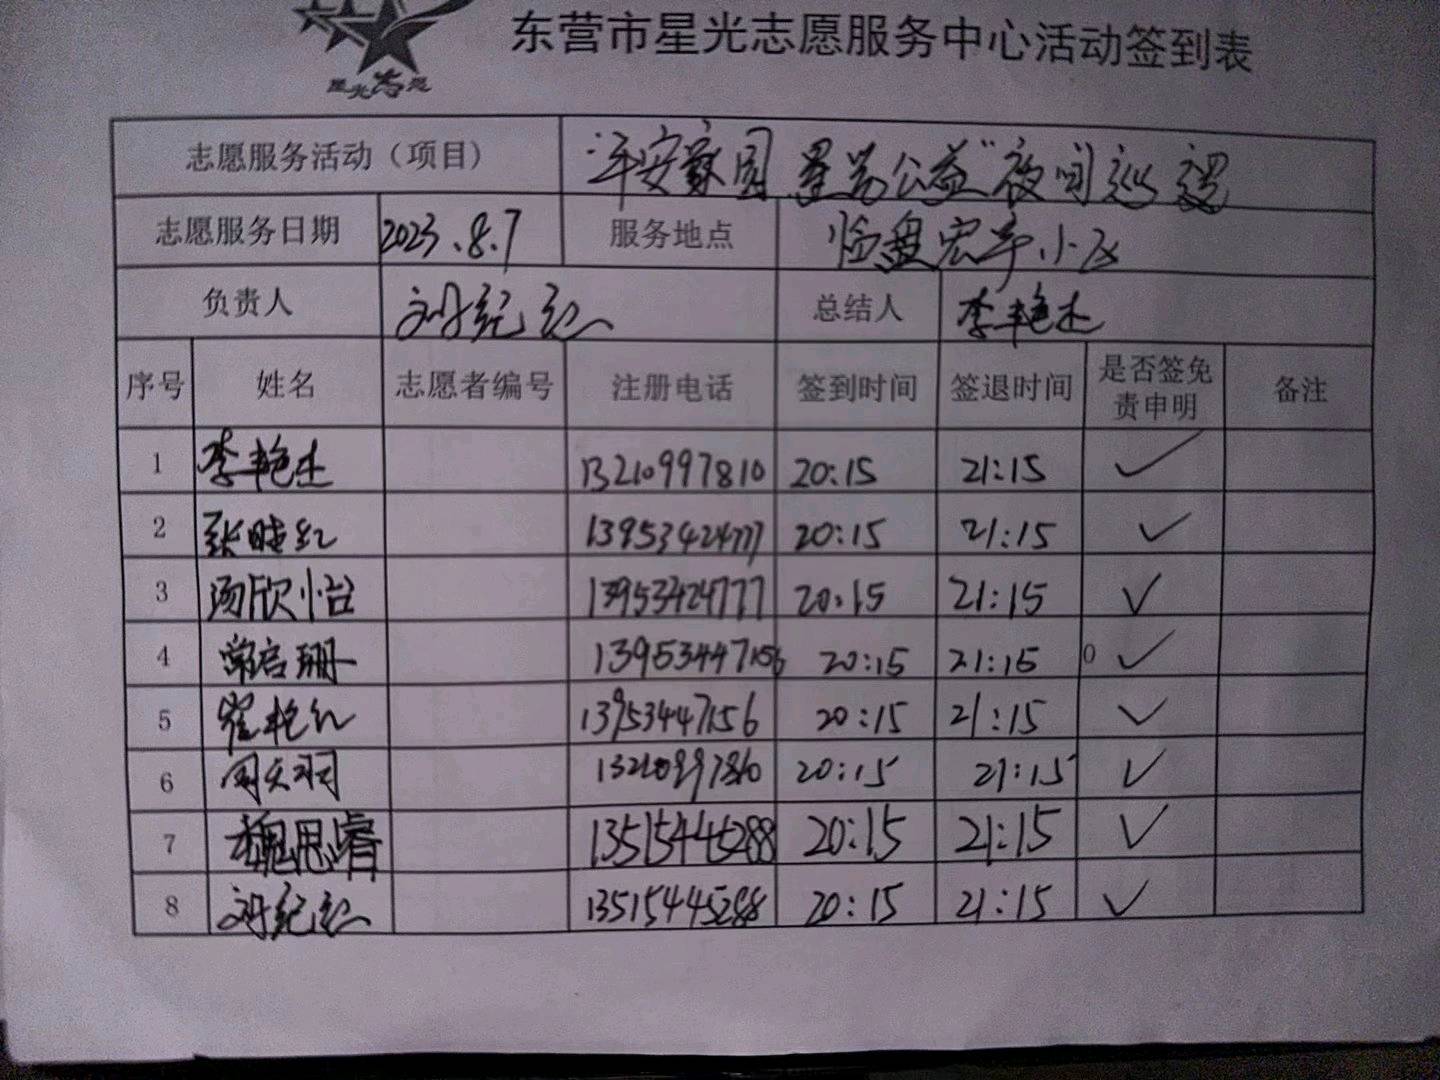 星光志愿
东营市星光志愿服务中心活动签到表
志愿服务活动（项目） “平安家园 星光公益”夜间巡逻
志愿服务日期 2023.8.7 服务地点 临盘宏宇小区
负责人 刘纪红 总结人 李艳杰
序号 姓名 志愿者编号 注册电话 签到时间 签退时间 是否签免责申明 备注
1 李艳杰 13210997810 20:15 21:15 ✓
2 张晓红 13953424777 20:15 21:15 ✓
3 汤欣怡 13953424777 20:15 21:15 ✓
4 启珊 13953447156 20:15 21:15 0 ✓
5 崔艳红 13953447156 20:15 21:15 ✓
6 周天羽 13210997810 20:15 21:15 ✓
7 魏思睿 13515445288 20:15 21:15 ✓
8 刘纪红 13515445288 20:15 21:15 ✓